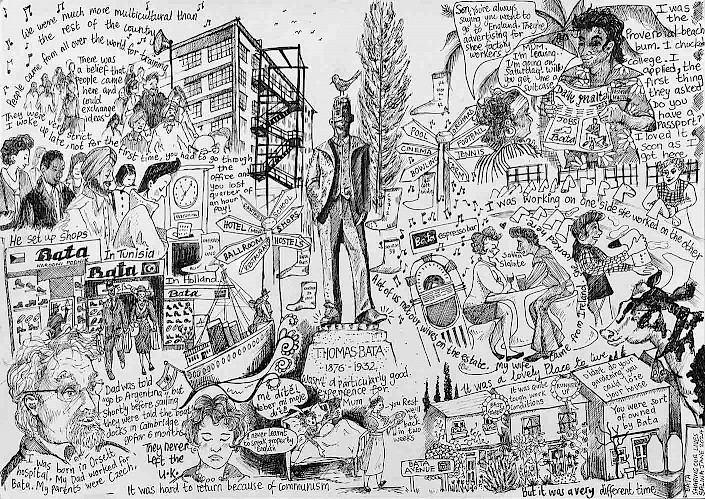 We were much more multicultural than
the rest of the country
People came from all over the world for training
There was
a belief that
people came
here and
could
exchange
ideas
They were very strict.
I woke up late, not for the first time, you had to go through
the
office and
you lost
quarter of
an hour
pay!
Son, you're always
saying you want to
go to England. They're
advertising for
shoe factory
workers
MUM,
I'm leaving.
I'm going on
Saturday! Will
you get me a
suitcase
I was
the
Proverbial beach
bum. I chucked
college. I
applied, the
first thing
they asked
Do you
have a
Passport?
I loved it
as soon as I
got here
Daily Mail
JOBS
Bata
POOL
CINEMA
TENNIS
He set up shops
Bata
In Tunisia
Bata
In Holland
Bata
SCHOOL
HOTEL
SHOPS
BALLROOM
HOSTELS
THOMAS BATA
1876-1932
I was working on one side she worked on the other
Bata espresso bar
Slainte
A lot of us met our wives on the estate. My wife came from Ireland
It was a lovely place to live
Dad was told
go to Argentina, but
shortly before sailing
they were told the boat
docks in Cambridge
go for 6 months
They never
left the
U.K.
I was born in Orsett
hospital. My Dad worked for
Bata. My parents were Czech.
It was hard to return because of communism
I never learned
to speak properly
you Rest
well
back
in two
weeks
BATA
AVENUE
It was quite
tough work
conditions
You were sort
of owned
by Bata
but it was a very different time